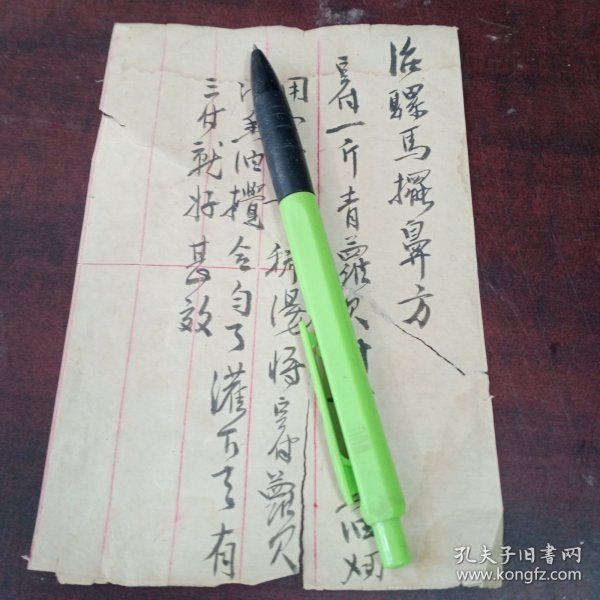 治騾馬擺鼻方
豆付一斤青蘿卜
用 稀湯將豆付蘿卜
油攪合勻了灌下去有
三付就好甚效
孔夫子旧书网
www.kongfz.com